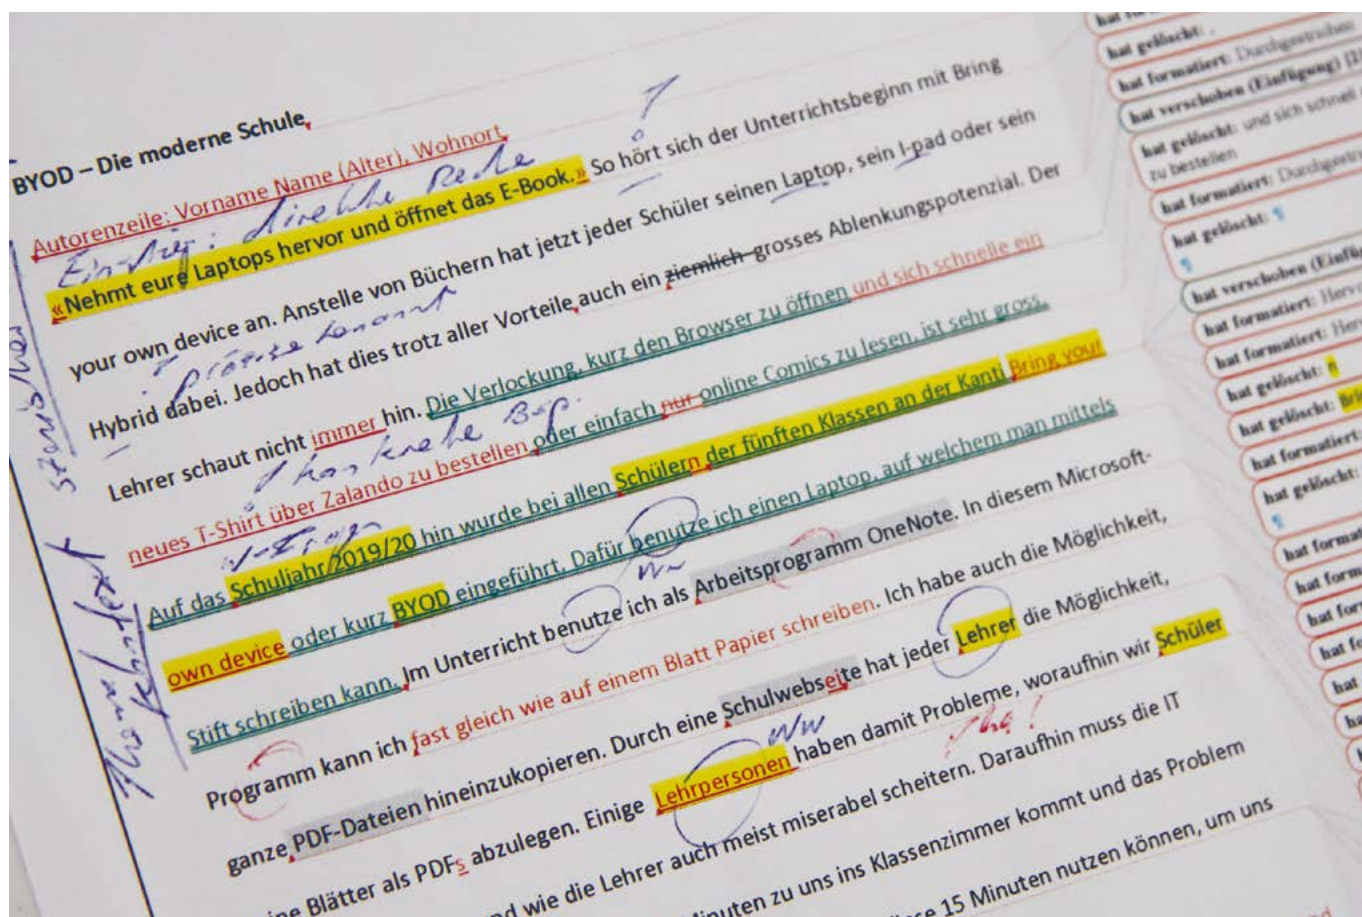 BYOD – Die moderne Schule,
Autorenzeile: Vorname Name (Alter), Wohnort,
Einstieg: direkte Rede
?
«Nehmt eure Laptops hervor und öffnet das E-Book.» So hört sich der Unterrichtsbeginn mit Bring
your own device an. Anstelle von Büchern hat jetzt jeder Schüler seinen Laptop, sein I-pad oder sein
präzise benannt
Hybrid dabei. Jedoch hat dies trotz aller Vorteile auch ein ziemlich grosses Ablenkungspotenzial. Der
Lehrer schaut nicht immer hin. Die Verlockung, kurz den Browser zu öffnen und sich schnelle ein
! konkrete Bsp.
neues T-Shirt über Zalando zu bestellen oder einfach nur online Comics zu lesen, ist sehr gross.
W-Fragen
Auf das Schuljahr 2019/20 hin wurde bei allen Schülern der fünften Klassen an der Kanti Bring your
own device oder kurz BYOD eingeführt. Dafür benutze ich einen Laptop, auf welchem man mittels
Ww
Stift schreiben kann. Im Unterricht benutze ich als Arbeitsprogramm OneNote. In diesem Microsoft-
Programm kann ich fast gleich wie auf einem Blatt Papier schreiben. Ich habe auch die Möglichkeit,
ganze PDF-Dateien hineinzukopieren. Durch eine Schulwebseite hat jeder Lehrer die Möglichkeit,
Ww
Blätter als PDFs abzulegen. Einige Lehrpersonen haben damit Probleme, woraufhin wir Schüler
wie die Lehrer auch meist miserabel scheitern. Daraufhin muss die IT
zu uns ins Klassenzimmer kommt und das Problem
15 Minuten nutzen können, um uns
szenischer
hat gelöscht: ,
hat formatiert: Durchgestrichen
hat verschoben (Einfügung) [2]
hat gelöscht: und sich schnell
zu bestellen
hat formatiert:
hat gelöscht: ¶
¶
hat verschoben
hat formatiert:
hat formatiert:
hat gelöscht: n
hat gelöscht:
hat formatiert
hat gelöscht:
¶